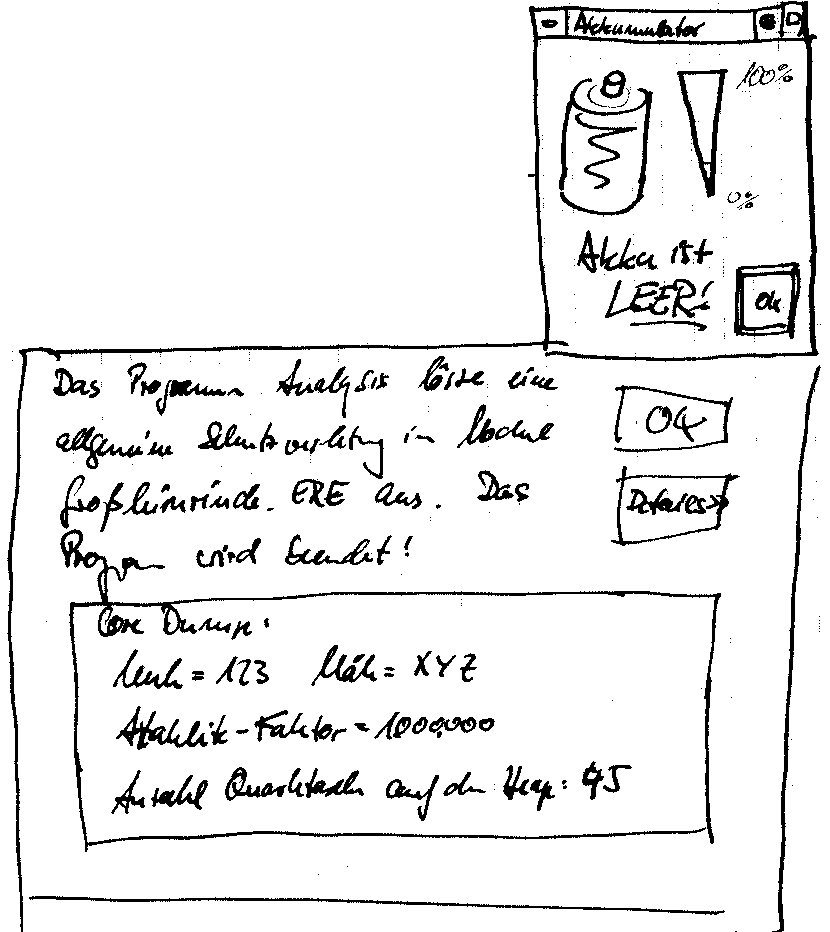 Akkumulator
100%
0%
Akku ist
LEER!
Ok
Das Programm Analysis löste eine
allgemeine Schutzverletzung in Module
.ERE aus. Das
Programm wird beendet!
OK
Details>>
Core Dump:
Muh = 123 Mäh = XYZ
-Faktor = 1000000
Anzahl Quarktaschen auf dem Heap: 45